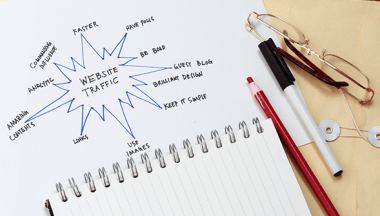 FASTER
HAVE POLLS
BE BOLD
GUEST BLOG
BRILLIANT DESIGN
KEEP IT SIMPLE
USE
IMAGES
LINKS
AMAZING
CONTENTS
WEBSITE
TRAFFIC